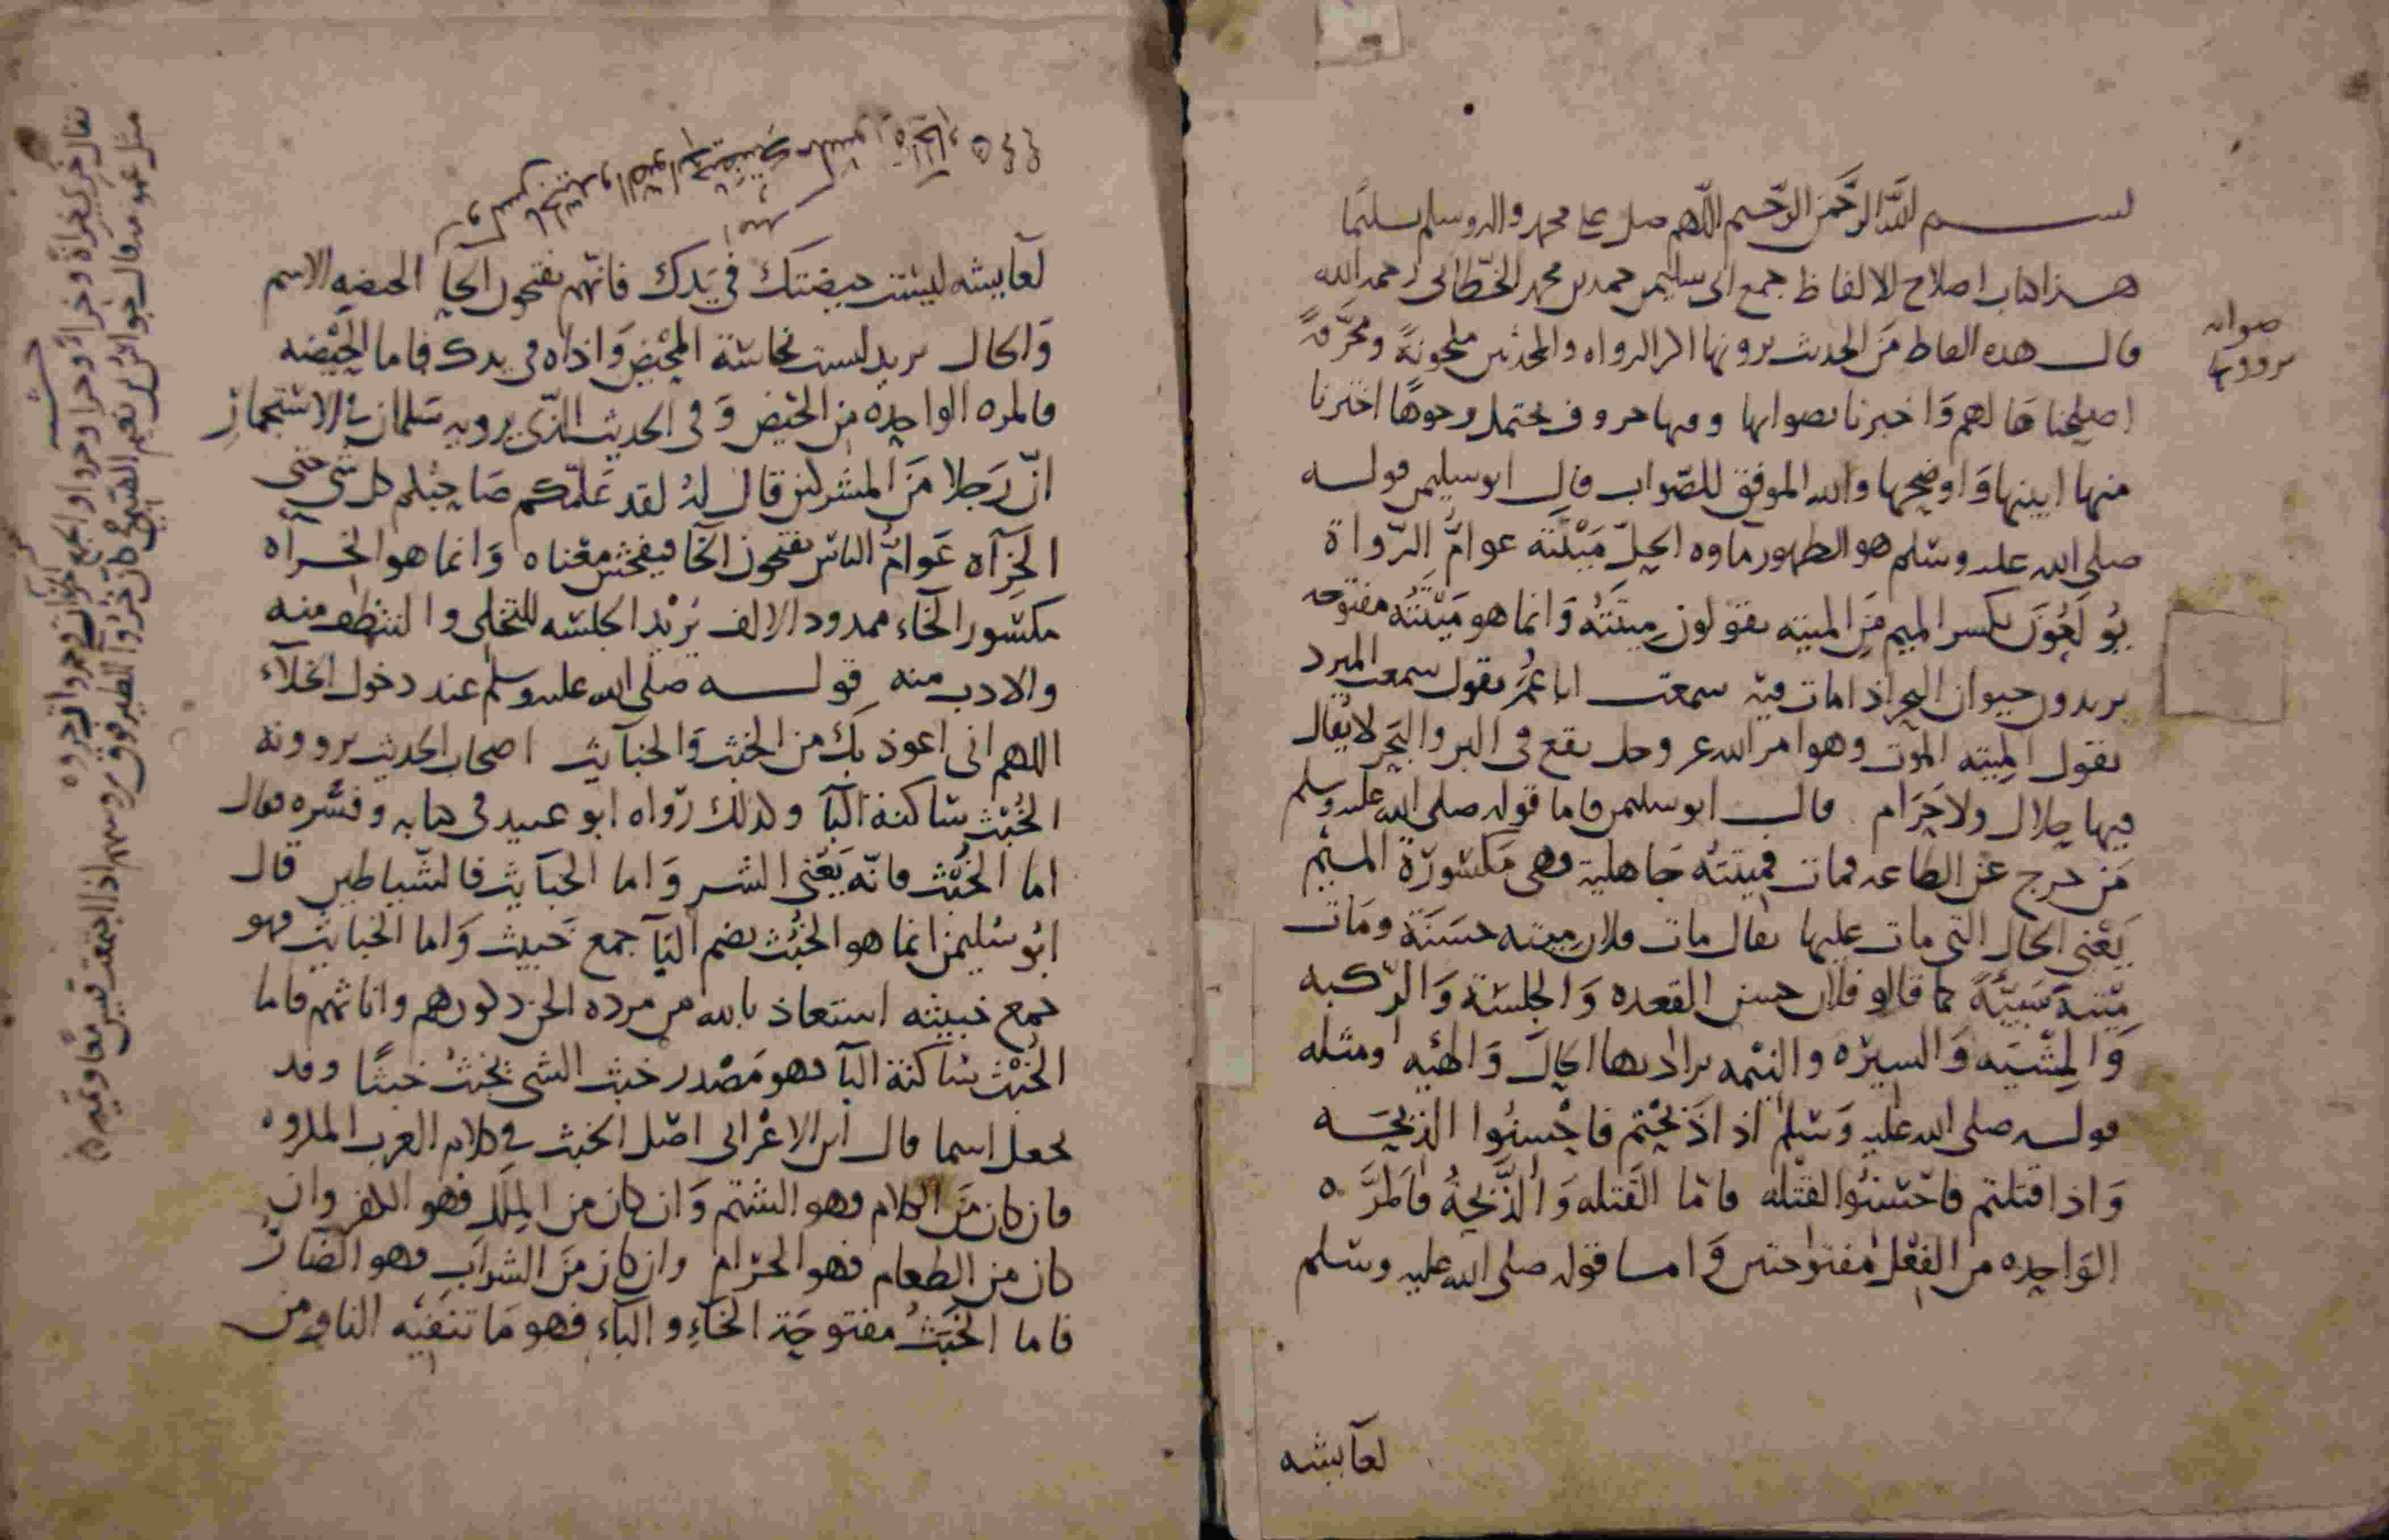 بسم الله الرَّحمن الرَّحيم اللّهم صل على محمد واله وسلم تسليمًا
هذا كتاب اصلاح الالفاظ جمع ابى سليمن حمد بن محمد الخطّابى رحمه الله
قال هذه الفاظ مَن الحديث يرونها اكثر الرواه والمحدثين ملحونةً ومحرَّفةً
اصلحناها لهم وَاخبرنا بصوابها وفيها حروف يحتمل وجوهًا اخترنا
منها ابينها وَاوضحها والله الموفق للصّواب قال ابو سليمن قوله
صلى الله عليه وسلم هو الطهور ماوه الحِلّ مَيْتَته عوامُّ الرّواة
يُولَعُونَ بكسر الميم مَن الميته يقولون مِيتَتُهُ وَانما هو مَيْتَتُه مفتوحه
يريدون حيوان البحر اذا مات فيه سمعت ابا عُمَر يقول سمعت المبرد
يقول المِيته الموت وهو امر الله عز وجل يقع فى البر والبَحر لا يُقال
فيها حلال ولا حَرَام قال ابو سليمن فاما قوله صلى الله عليه وسلم
مَن خرج عَن الطاعه فمات فمِيتتُه جَاهلية فهى مَكسُورَة الميم
يَعْنى الحال التى مات عليها يقال مات فلان مِيته حسَنَة ومَات
مِيتة سَيِّئَةً كما قالو فلان حسن القعده وَالجِلسَة وَالرّكبه
وَالمِشْيَه وَالسيرَه والنيْمه يراد بها الحال وَالهَيئه ومثله
قوله صلى الله عليه وَسَلم اذا ذَبَحْتم فاحْسِنُوا الذِبْحَه
وَاذا قتلتم فاحْسِنُوا القِتْله فامّا القَتله وَالذَّبحَةُ فالمَرَّه
الوَاحِده من الفِعْل مفتوحتين وَاما قوله صلى الله عليه وسلم
لعآيشه
صوابه
يرويها
لعآيشه ليسَت حيضتك فى يَدك فانّهم يفتحون الحآ الحيضه الاسم
وَالحال يريد ليست نجاسَة المحِيْض وَاذاه فى يدك فاما الحَيْضه
فالمره الواحِده مِن الحَيض وَفى الحديث الذّى يرويه سَلمان فى الاسْتِجمَارِ
انّ رَجلا مَن المشركين قال لهُ لقد عَلمّكم صَاحِبُكم كل شى حَتى
الخِرآة عَوامُّ الناس يفتحون الخآ فيفحش معْناه وَانما هو الخِرآه
مكسُور الخآء ممدود الالف يُرْيد الجلسَه للتخلى والتنظف منه
والادب منه قوله صلى الله عليه وسلم عند دخول الخلآء
اللهم انى اعوذ بِكَ من الخبث وَالخبآيث اصحاب الحديث يروونه
الخُبْث سَاكنة البآ وكذلك رَواه ابو عبيد فى كتابه وفسَّره فقال
اما الخُبْث فانّه يَعْنى الشر وَاما الخبَآيث فالشّياطين قال
ابُو سُليمن انما هو الخُبُث بضم البَآ جمع خَبيث وَاما الخبايث فهو
جمع خبيثه استعاذ بالله من مرده الجن ذكورهم واناثهم فاما
الخُبْث سَاكنة البآ فهو مَصْدر خبث الشى يخبُثُ خبثًا وقد
يجعل اسما قال ابن الاعْرابى اصْل الخبث فى كلام العرب المكروه
فان كان مَن الكلام فهو الشتم وَان كان من المِلَل فهو الكفر وان
كان من الطعام فهو الحرَام وان كان مَن الشراب فهو الضَار
فاما الخَبَثُ مفتوحَة الخآء والبآء فهو مَا تنفيْه النار من